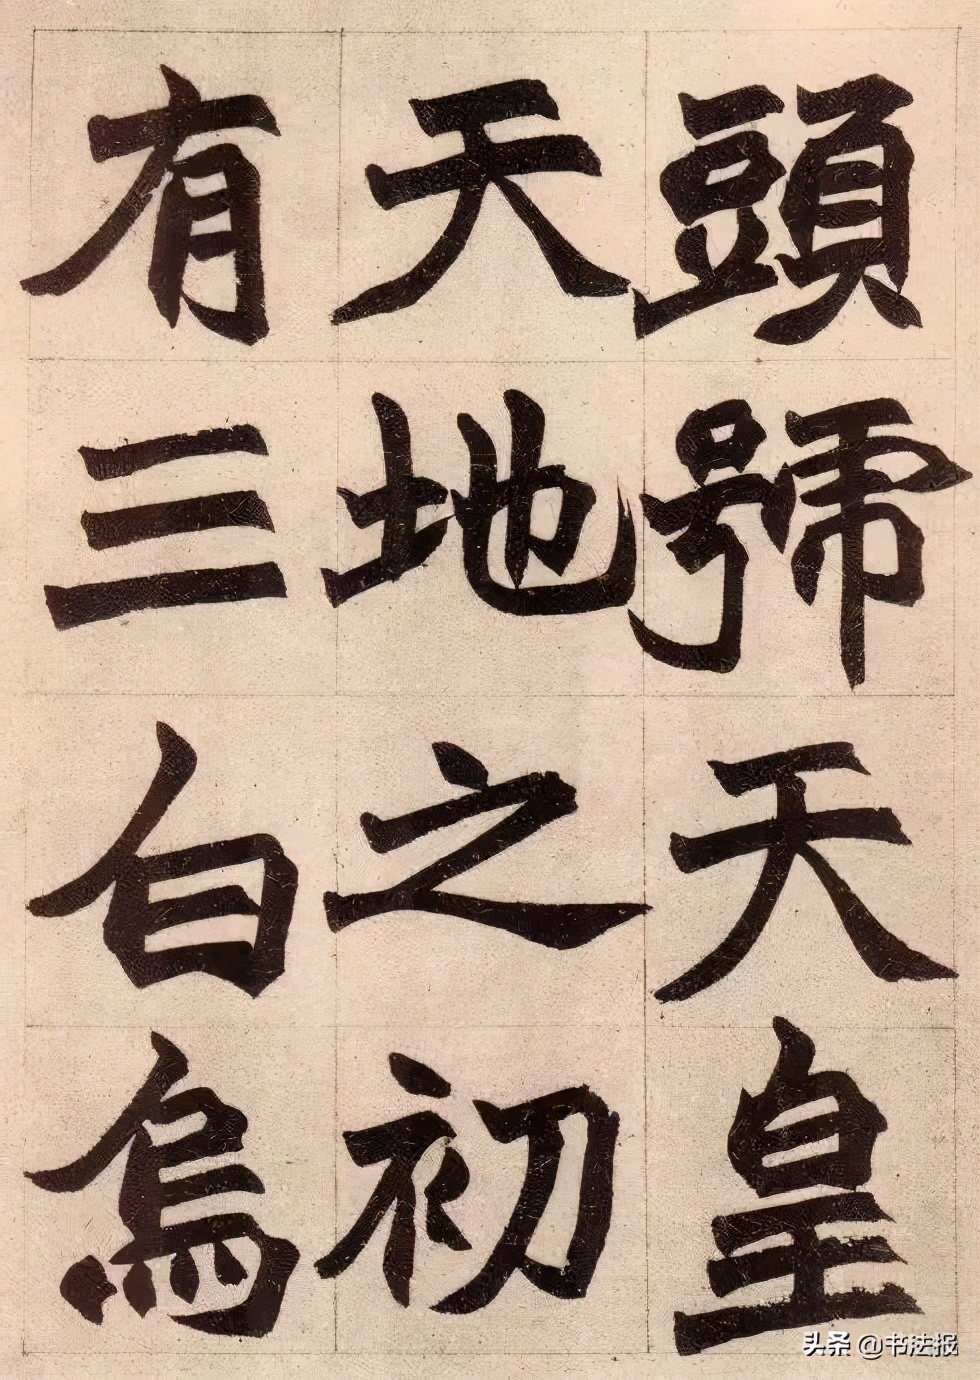 頭號天皇
天地之初
有三白烏
头条 @书法报